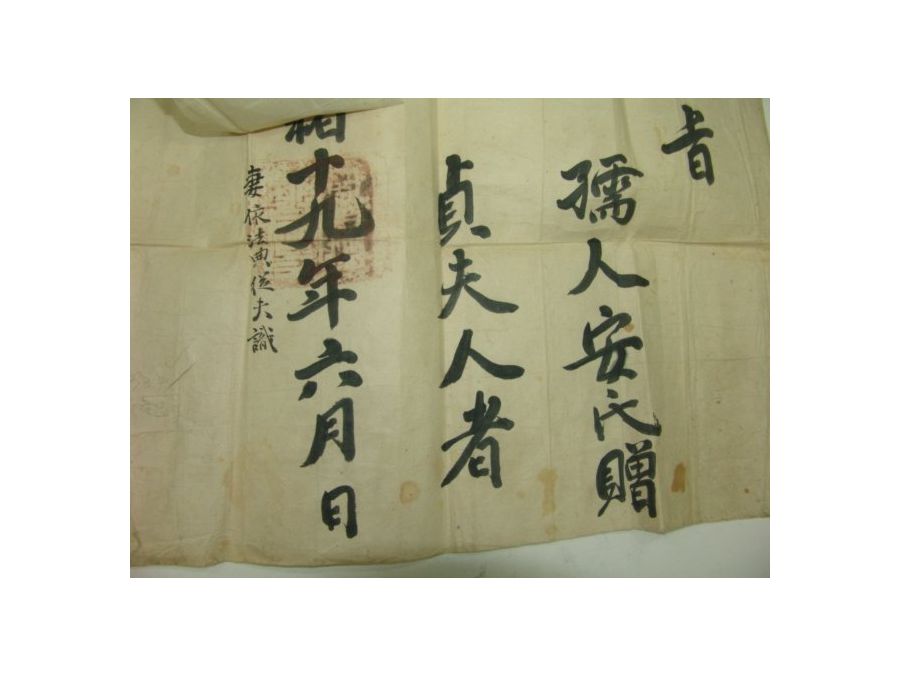 旨
孺人安氏贈
貞夫人者
緒十九年六月 日
妻依法典從夫職